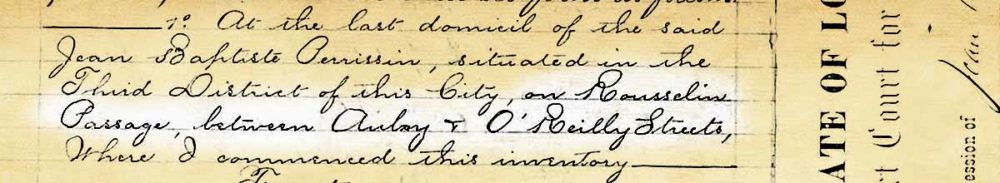 1º At the last domicil of the said
Jean Baptiste Perrissin, situated in the
Third District of this City, on Rousselin
Passage, between Aubry & O'Reilly Streets,
Where I commenced this inventory
ATE OF LO
rt Court for
ession of
Jean